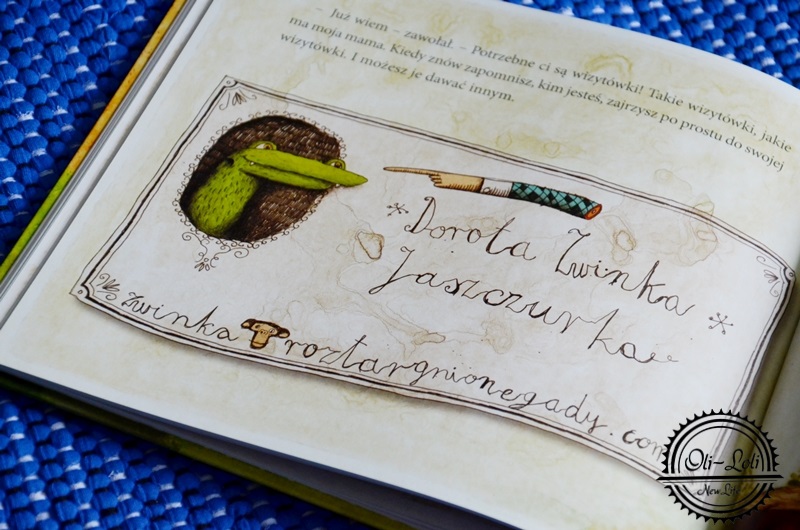 – Już wiem – zawołał. – Potrzebne ci są wizytówki! Takie wizytówki, jakie
ma moja mama. Kiedy znów zapomnisz, kim jesteś, zajrzysz po prostu do swojej
wizytówki. I możesz je dawać innym.
Dorota Zwinka
Jaszczurka
zwinka roztargnionegady.com
Oli-Loli
New Life